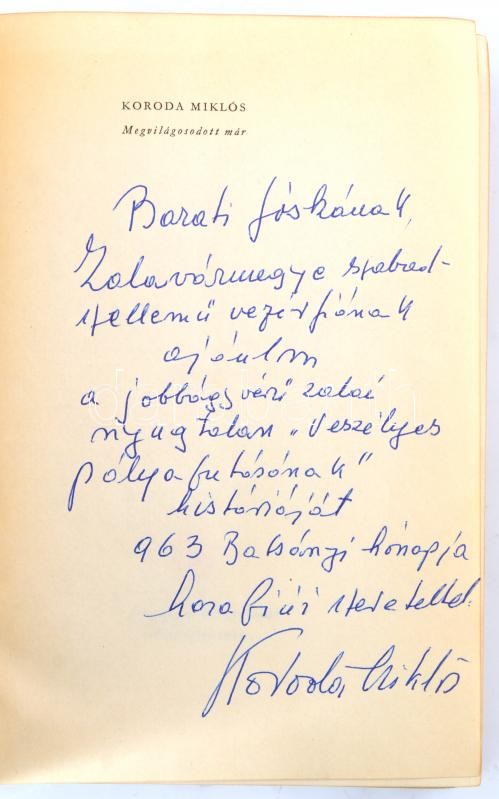 KORODA MIKLÓS
Megvilágosodott már
Barati Jóskának,
Zalavármegye szabad-
szellemű vezérfiának
ajánlom
a jobbágyvérű zalai
nyugtalan „Veszélyes
pályafutásának"
históriáját
963 Batsányi hónapja
honfiúi szeretettel:
Koroda Miklós